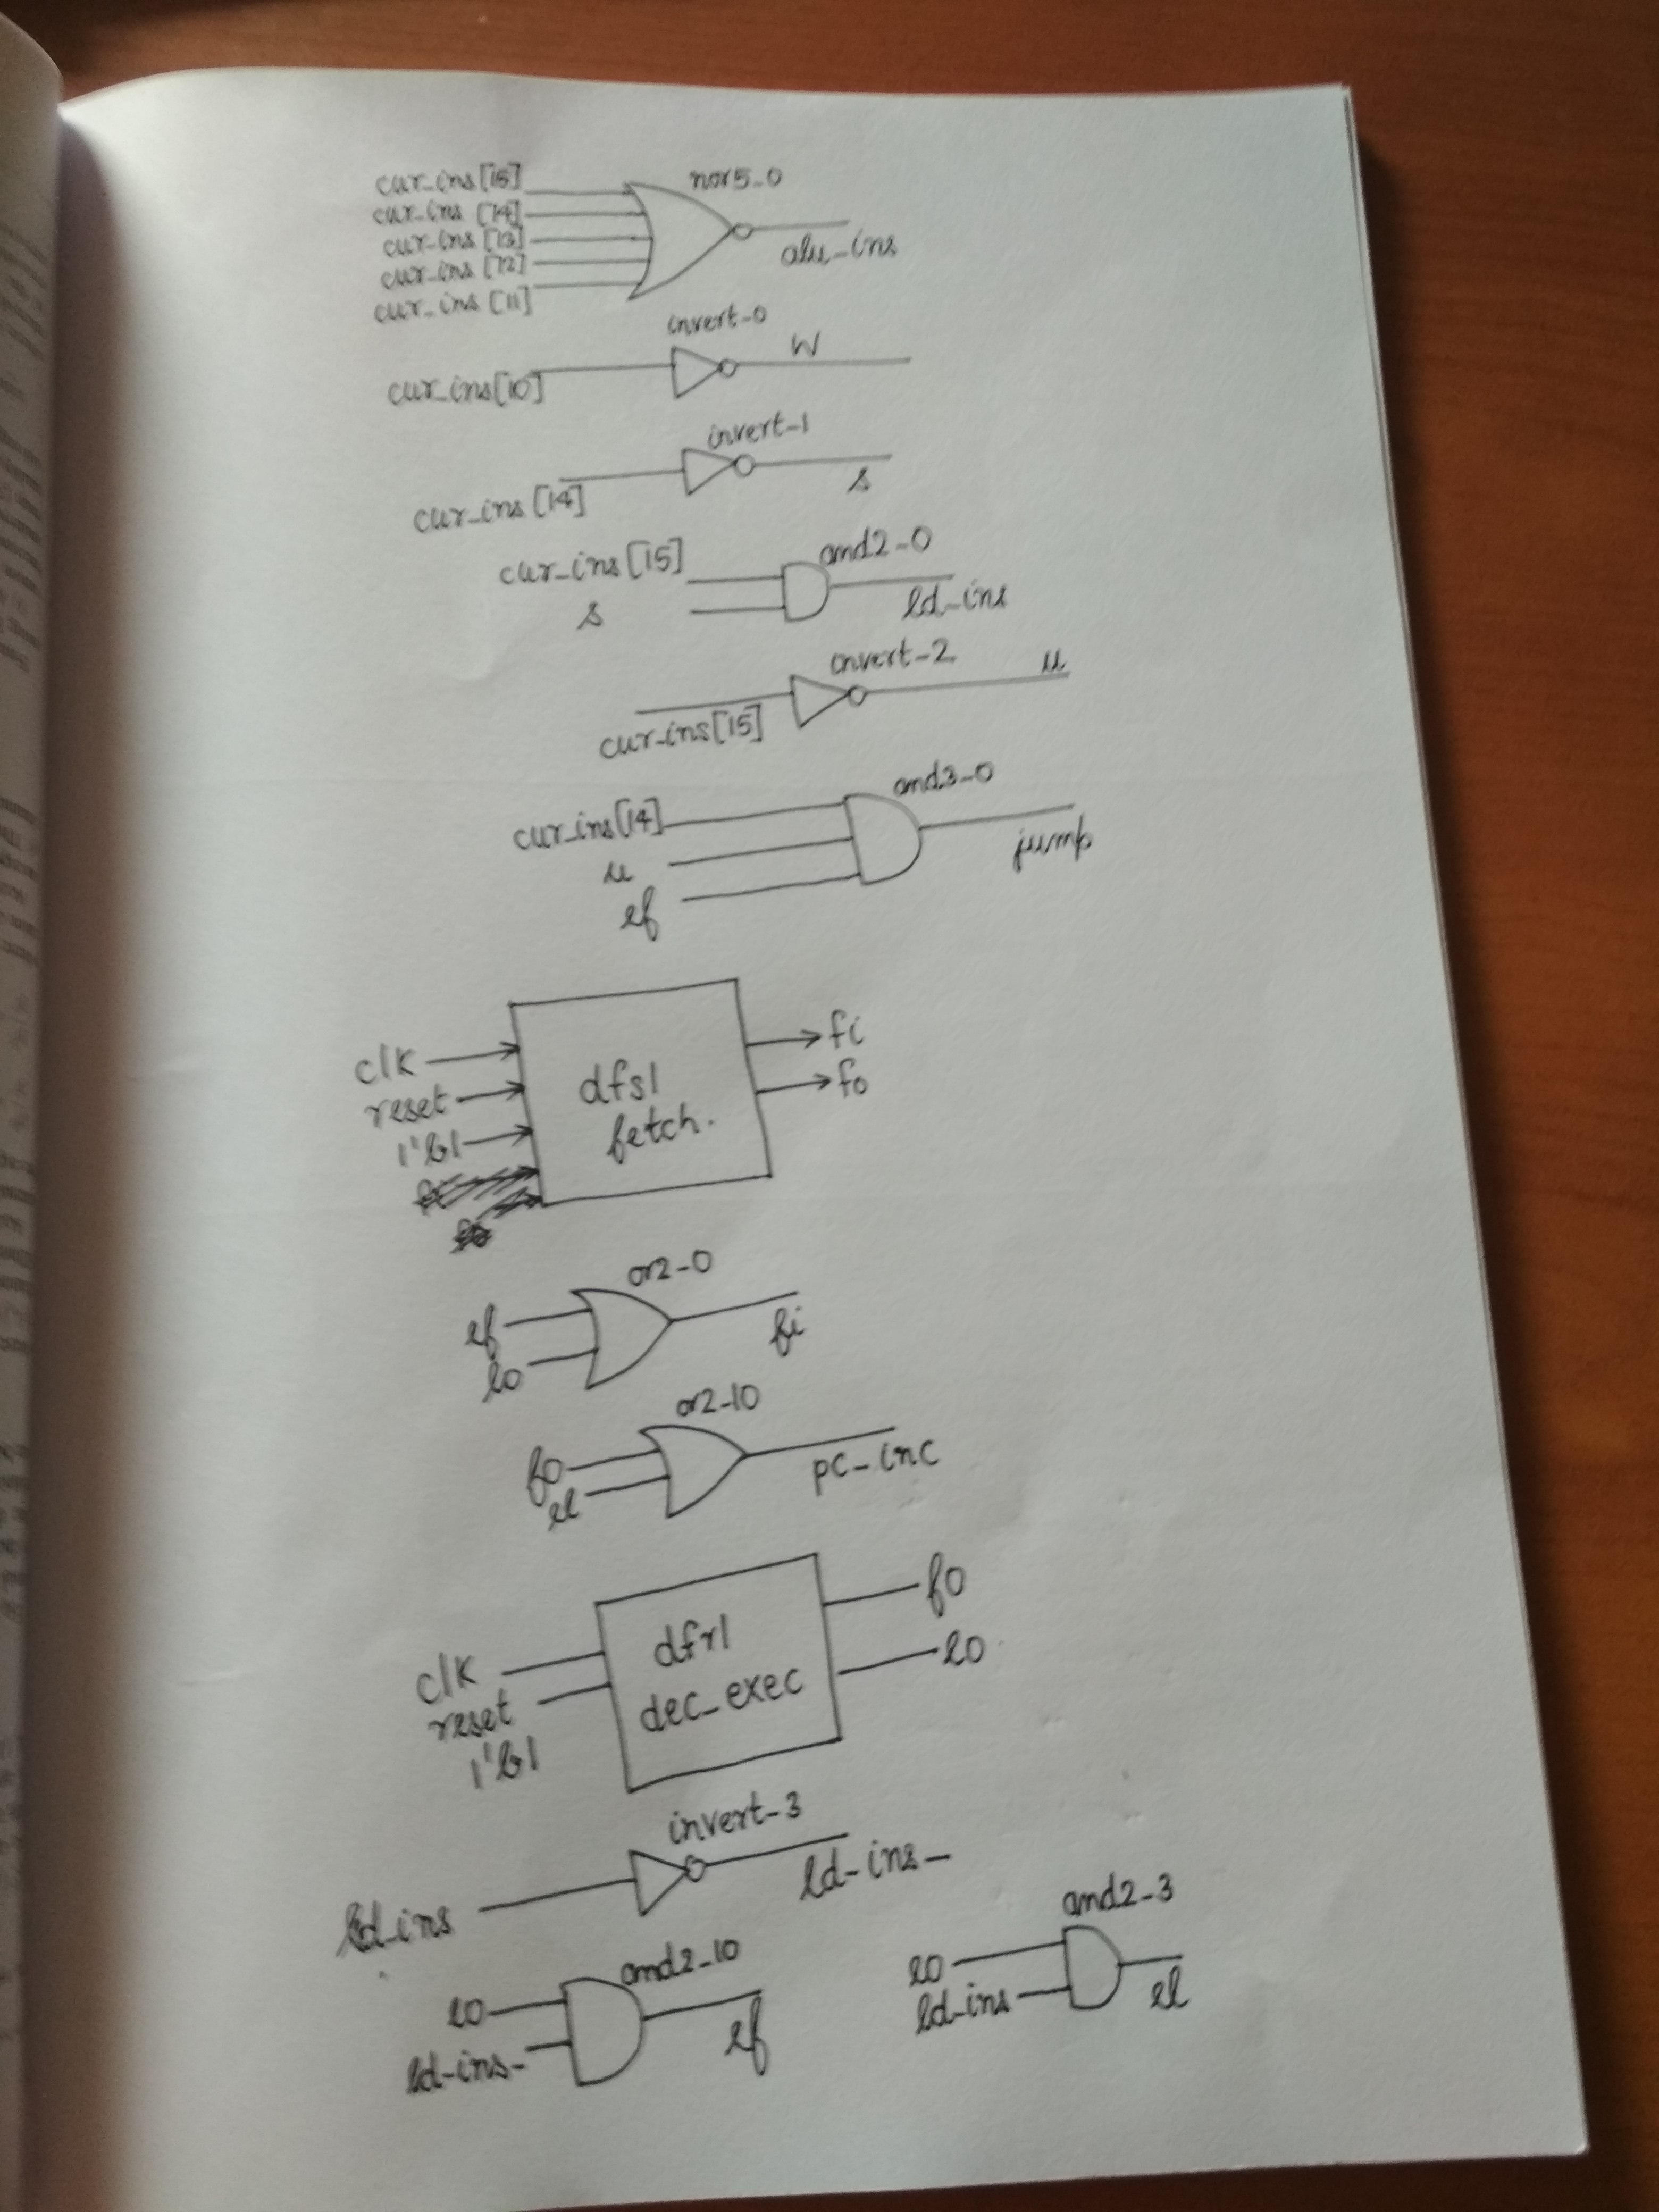 nor5_0
cur_ins[15]
cur_ins [14]
cur_ins [13]
cur_ins [12]
cur_ins [11]
alu_ins
invert_0
W
cur_ins[10]
invert_1
s
cur_ins [14]
and2_0
cur_ins[15]
s
ld_ins
invert_2
u
cur_ins[15]
and3_0
cur_ins[14]
u
ef
jump
clk
reset
1'b1
dfsl
fetch.
fi
fo
or2_0
ef
lo
fi
or2_10
fo
el
pc_inc
clk
reset
1'b1
dfrl
dec_exec
fo
eo
invert_3
ld_ins
ld_ins_
and2_10
eo
ld_ins_
ef
and2_3
eo
ld_ins
el